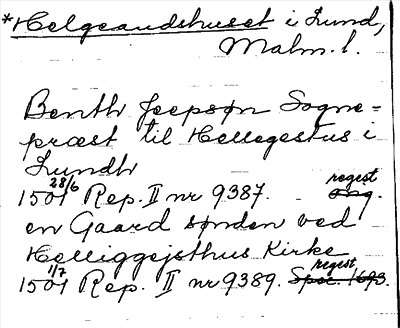 *Helgeandshuset i Lund,
Malm. l.
Benth Jeepsøn Sogne=
præst til Hellegestus i
Lundh
1501 28/6 Rep. II nr 9387. regest
en Gaard sønden ved
Helliggejsthus Kirke
1501 1/7 Rep. II nr 9389. regest